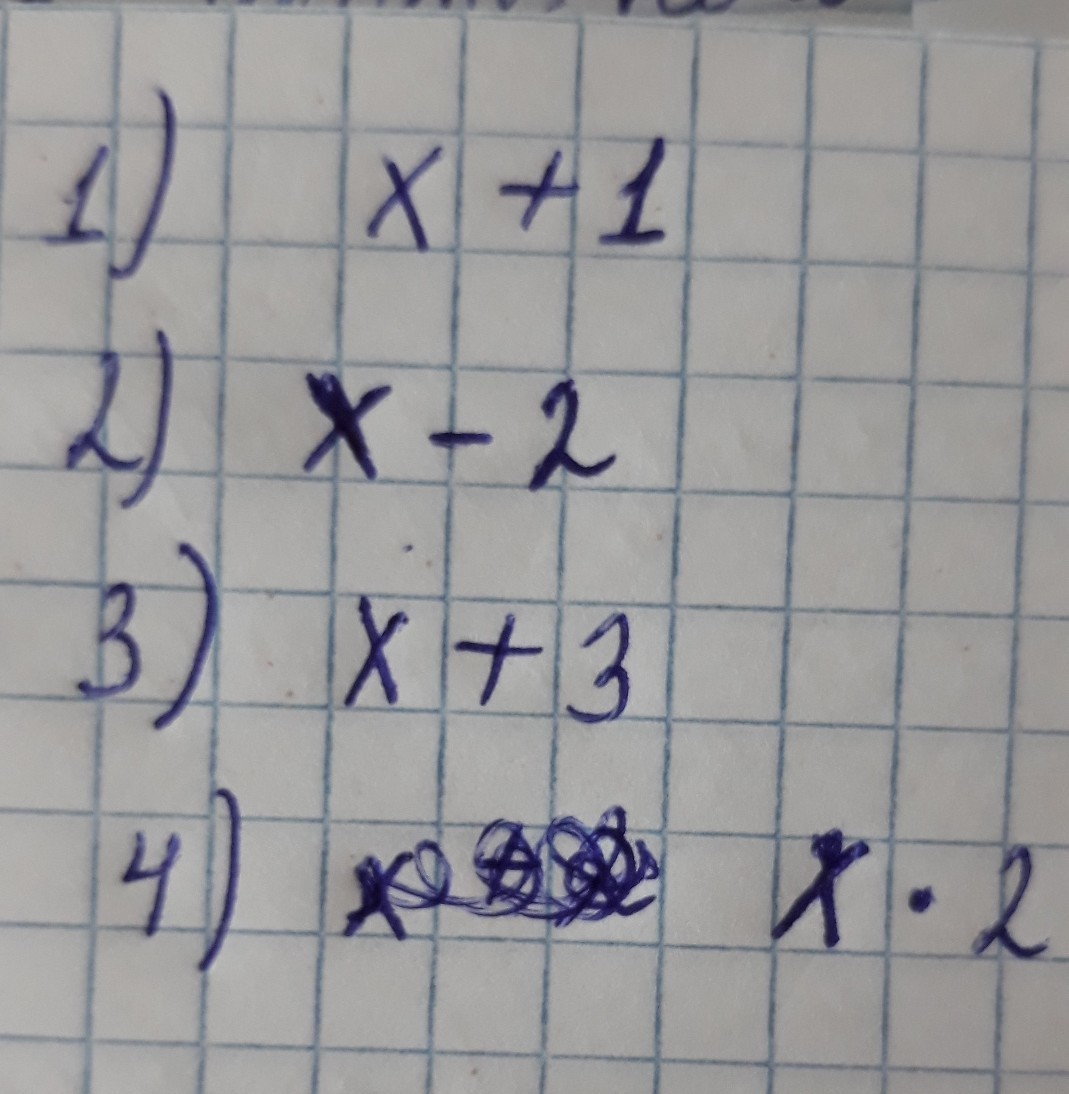 1) x + 1
2) x - 2
3) x + 3
4) x · 2